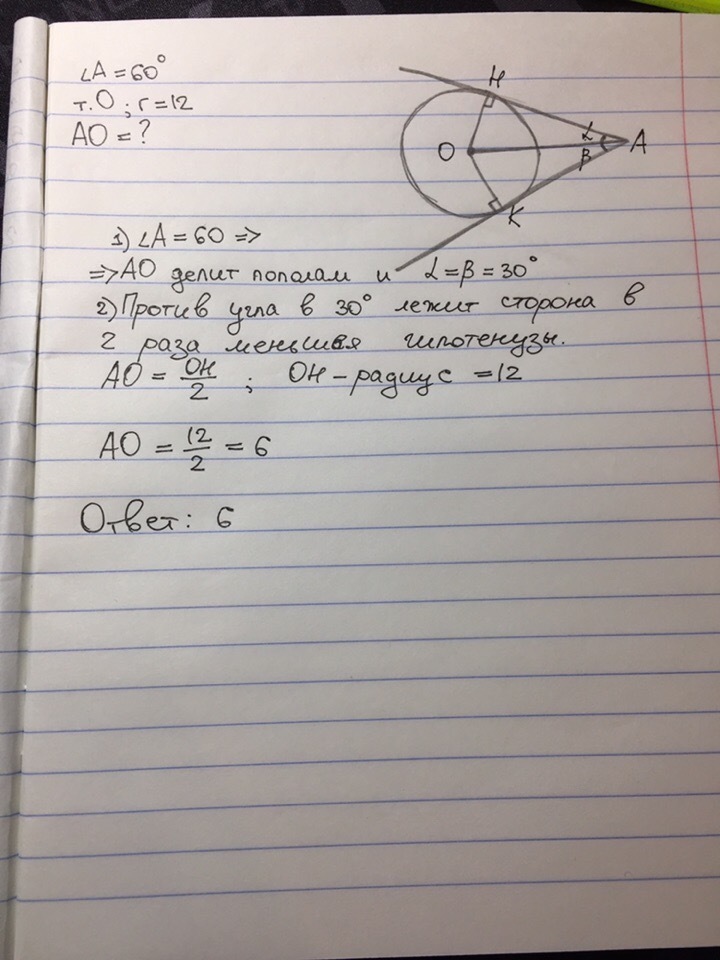 ∠A = 60°
т.О ; r = 12
AO = ?
H
O
α
β
A
K
1) ∠A = 60 =>
=> AO делит пополам и α = β = 30°
2) Против угла в 30° лежит сторона в
2 раза меньшая гипотенузы.
AO = OH/2 ; OH – радиус = 12
AO = 12/2 = 6
Ответ: 6